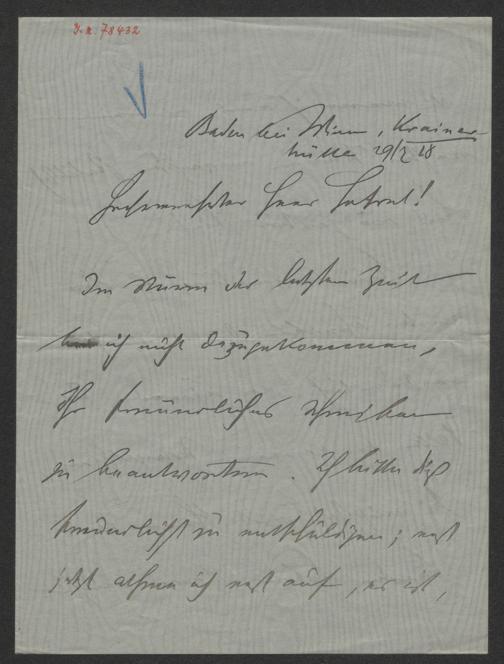 I.N. 78432
Baden bei Wien, Krainer-
hütte 29/7 18
Hochverehrter Herr Hofrat!
Im Sturm der letzten Zeit
ich nicht dazugekommen,
Ihr freundliches Schreiben
zu beantworten. Ich bitte dies
freundlichst zu entschuldigen; erst
jetzt atme ich erst auf, es ist,